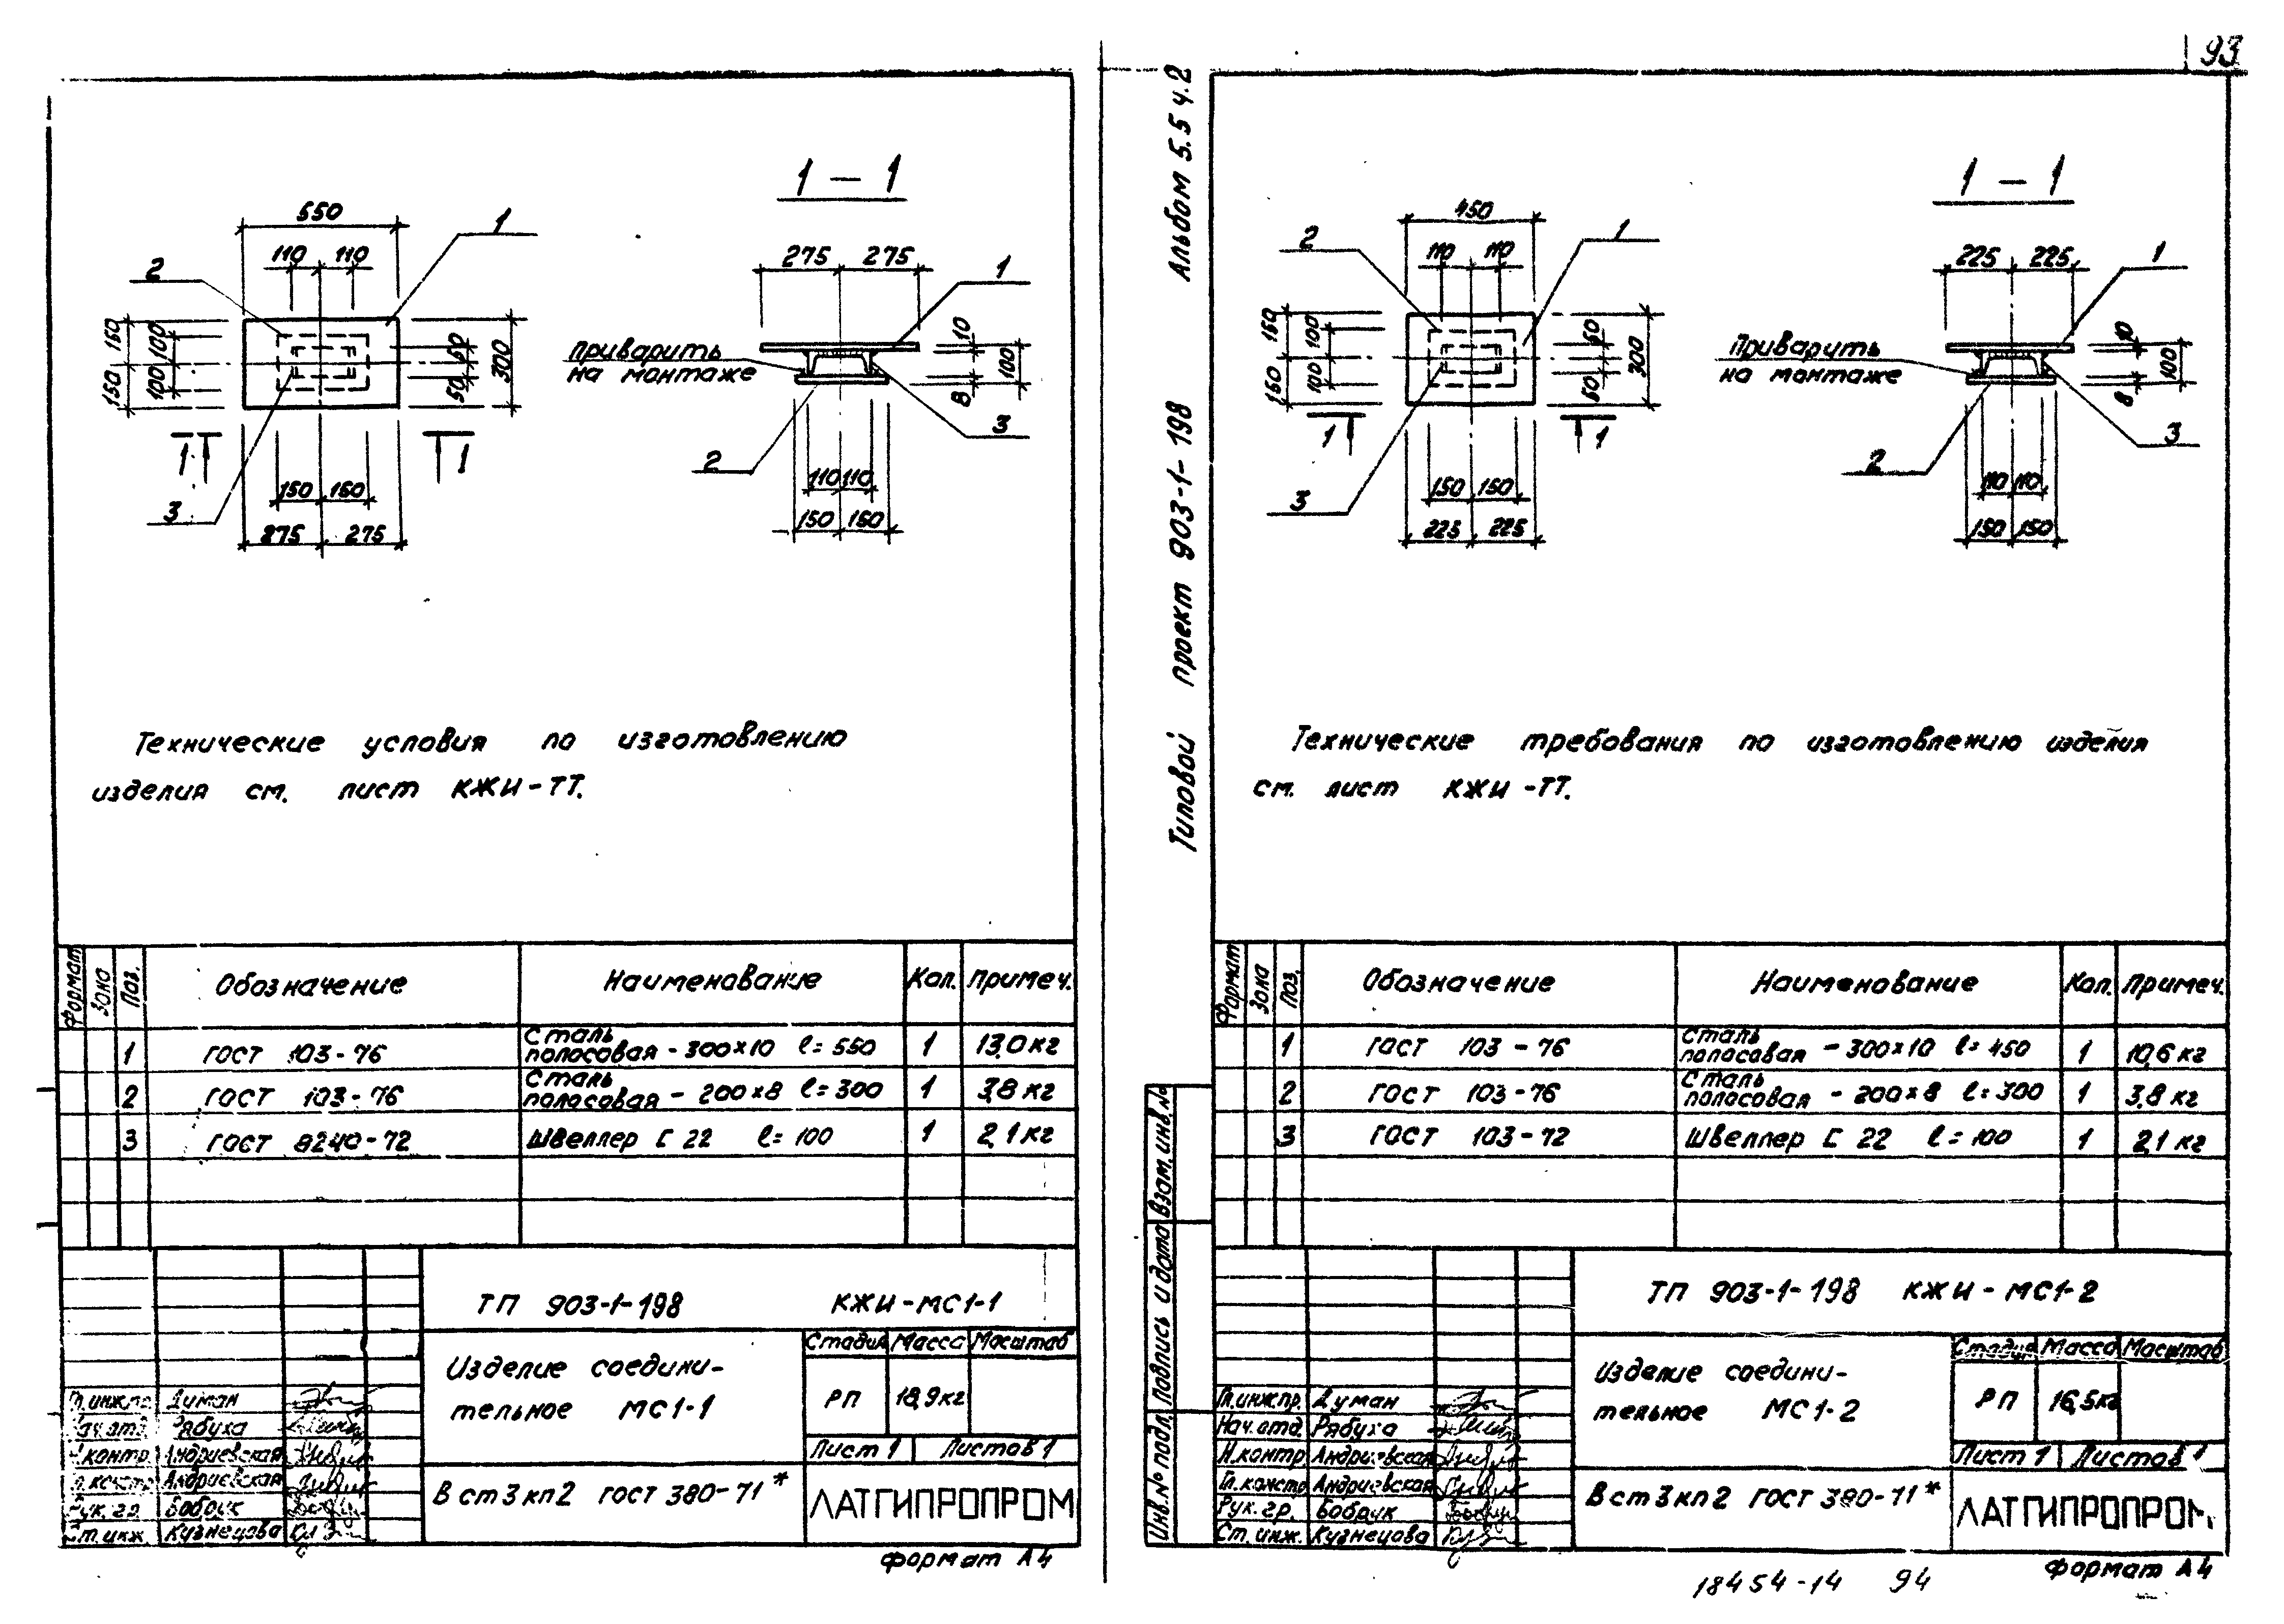 93
1 – 1
550
110 110
1
2
150
150
100
100
50
50
300
3
1 1
150 150
275 275
275 275
1
приварить
на монтаже
10
100
8
3
2
110 110
150 150
Технические условия по изготовлению
изделия см. лист КЖИ-ТТ.
Формат Зона Поз. Обозначение Наименование Кол. Примеч.
1 ГОСТ 103-76 Сталь полосовая - 300×10 ℓ=550 1 13,0 кг
2 ГОСТ 103-76 Сталь полосовая - 200×8 ℓ=300 1 3,8 кг
3 ГОСТ 8240-72 Швеллер [ 22 ℓ=100 1 2,1 кг
ТП 903-1-198 КЖИ-МС1-1
Изделие соедини-
тельное МС1-1
Стадия Масса Масштаб
РП 18,9кг
Лист 1 Листов 1
В ст3кп2 ГОСТ 380-71*
ЛАТГИПРОПРОМ
Гл.инж.пр. Думан
Нач.отд. Рябуха
Н.контр. Андриевская
Гл.констр. Андриевская
Рук.гр. Бобрук
Ст.инж. Кузнецова
формат А4
Типовой проект 903-1-198 Альбом 5.5 ч.2
1 – 1
450
110 110
1
2
150
150
100
100
50
50
300
3
1 1
150 150
225 225
225 225
1
Приварить
на монтаже
10
100
8
3
2
110 110
150 150
Технические требования по изготовлению изделия
см. лист КЖИ-ТТ.
Формат Зона Поз. Обозначение Наименование Кол. Примеч.
1 ГОСТ 103-76 Сталь полосовая - 300×10 ℓ=450 1 10,6 кг
2 ГОСТ 103-76 Сталь полосовая - 200×8 ℓ=300 1 3,8 кг
3 ГОСТ 103-72 Швеллер [ 22 ℓ=100 1 2,1 кг
ТП 903-1-198 КЖИ-МС1-2
Изделие соедини-
тельное МС1-2
Стадия Масса Масштаб
РП 16,5кг
Лист 1 Листов 1
В ст3кп2 ГОСТ 380-71*
ЛАТГИПРОПРОМ
Гл.инж.пр. Думан
Нач.отд. Рябуха
Н.контр. Андриевская
Гл.констр. Андриевская
Рук.гр. Бобрук
Ст.инж. Кузнецова
Инв.№ подл. Подпись и дата Взам.инв.№
формат А4
18454-14 94